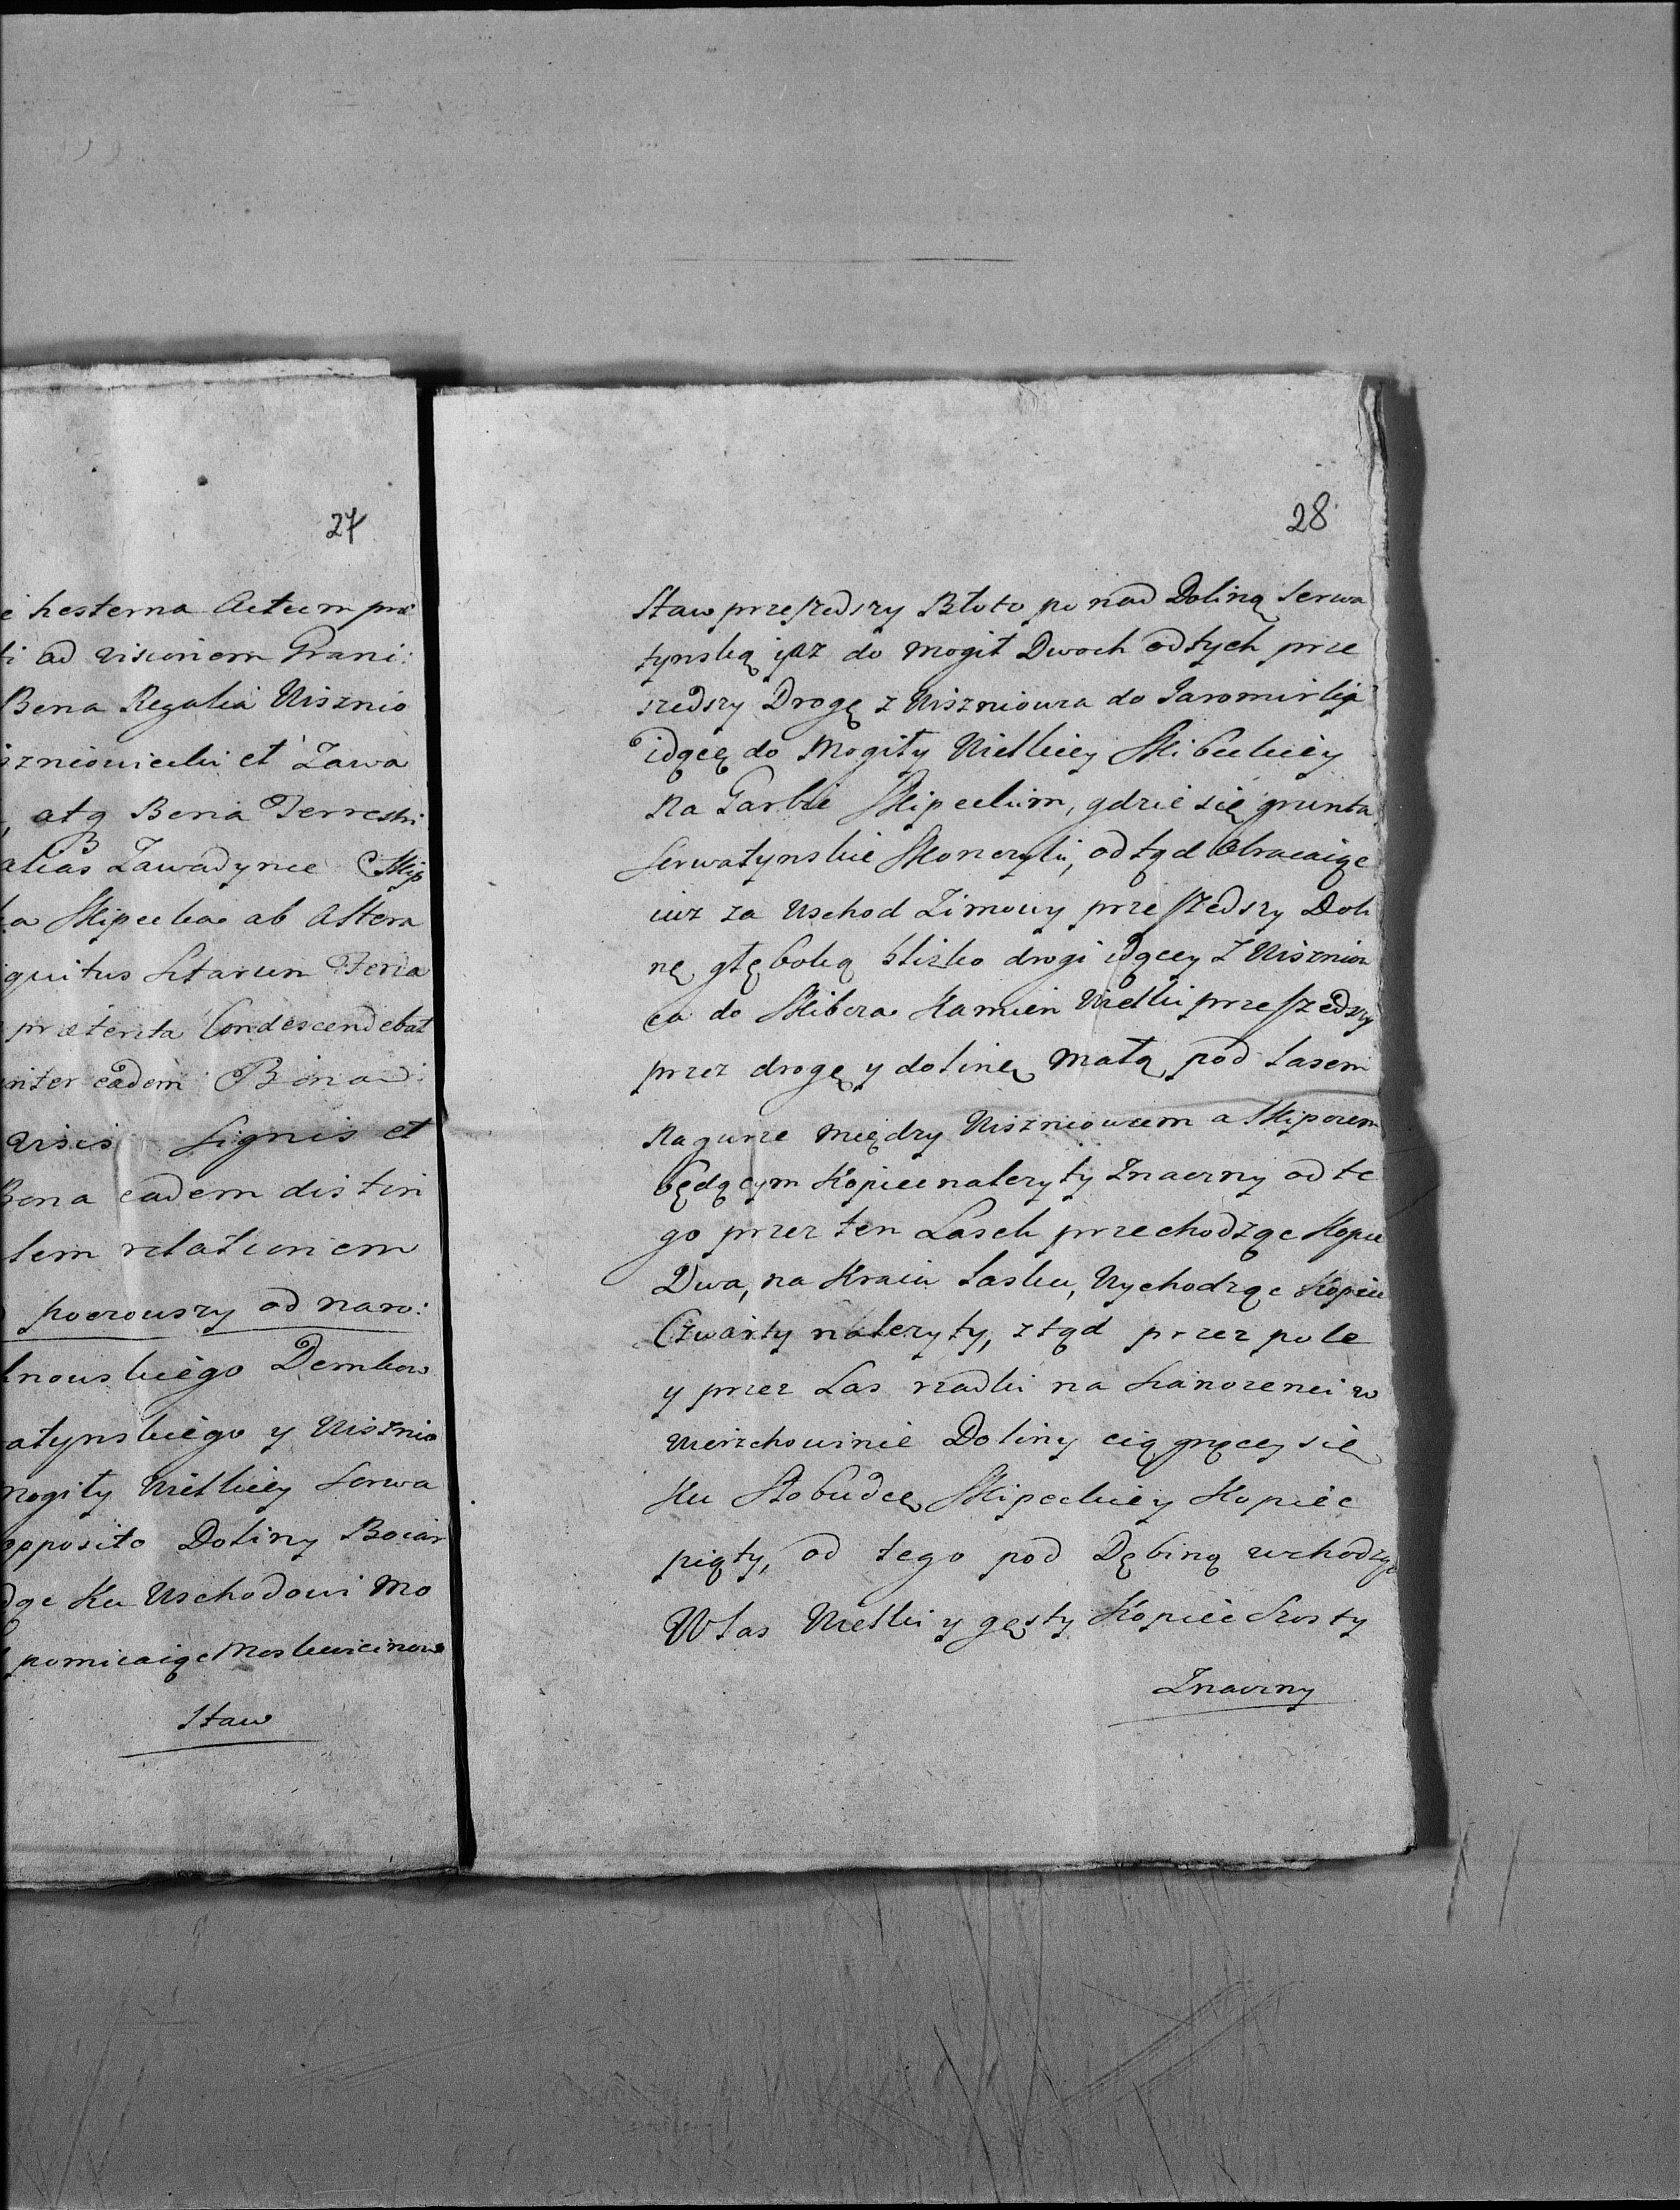 27
e hesterna Actum prae
ti ad visionem Grani:
Bona Regalia Wisznio
sznioviecki et Zawa
, atq Bona Terrestri
alias Zawadynce Skip
ka Skipecka ab Altera
quitus Litarum Feria
praeterita Condescendebat
inter eadem Bona
visis Signis et
Bona eadem distin
tem relationem
poczowszy od naro:
knowskiego Dembow
atynskiego y Wisznio
mogiły Wielkiey Serwa
opposito Doliny Bociar
dąc Ku Wschodowi Mo
pomiiaiąc Moskwicinow
Staw
28
Staw przeszedszy Błoto po nad Doliną Serwa
tynską yaz do Mogił Dwoch od tych prze
szedszy Drogę z Wiszniowca do Jaromirki
idącą do Mogiły Wielkiey Skibeckiey
Na Garbie Skipeckim, gdzie się grunta
Serwatynskie Skonczyli, od tąd Obracaiąc
iuz za Wschod Zimowy przeszedszy Doli
nę głęboką blizko drogi idącey Z Wiszniow
ca do Skibcza Kamien Wielki przeszedszy
przez drogę y dolinę Małą pod Lasem
Na gurze między Wiszniowcem a Skipczem
będącym Kopiec nalezyty Znaczny od te
go przez ten Lasek przechodząc Kopce
Dwa, na Kraiu Lasku, Wychodząc Kopiec
Czwarty nalezyty, ztąd przez pole
y przez Las rzadki na Sianozenci w
Wierzchowinie Doliny ciągnącey się
Ku Słobudce Skipeckiey Kopiec
piąty, od tego pod Dębiną wchodząc
W Las Wielki y gęsty Kopiec Szosty
Znaczny